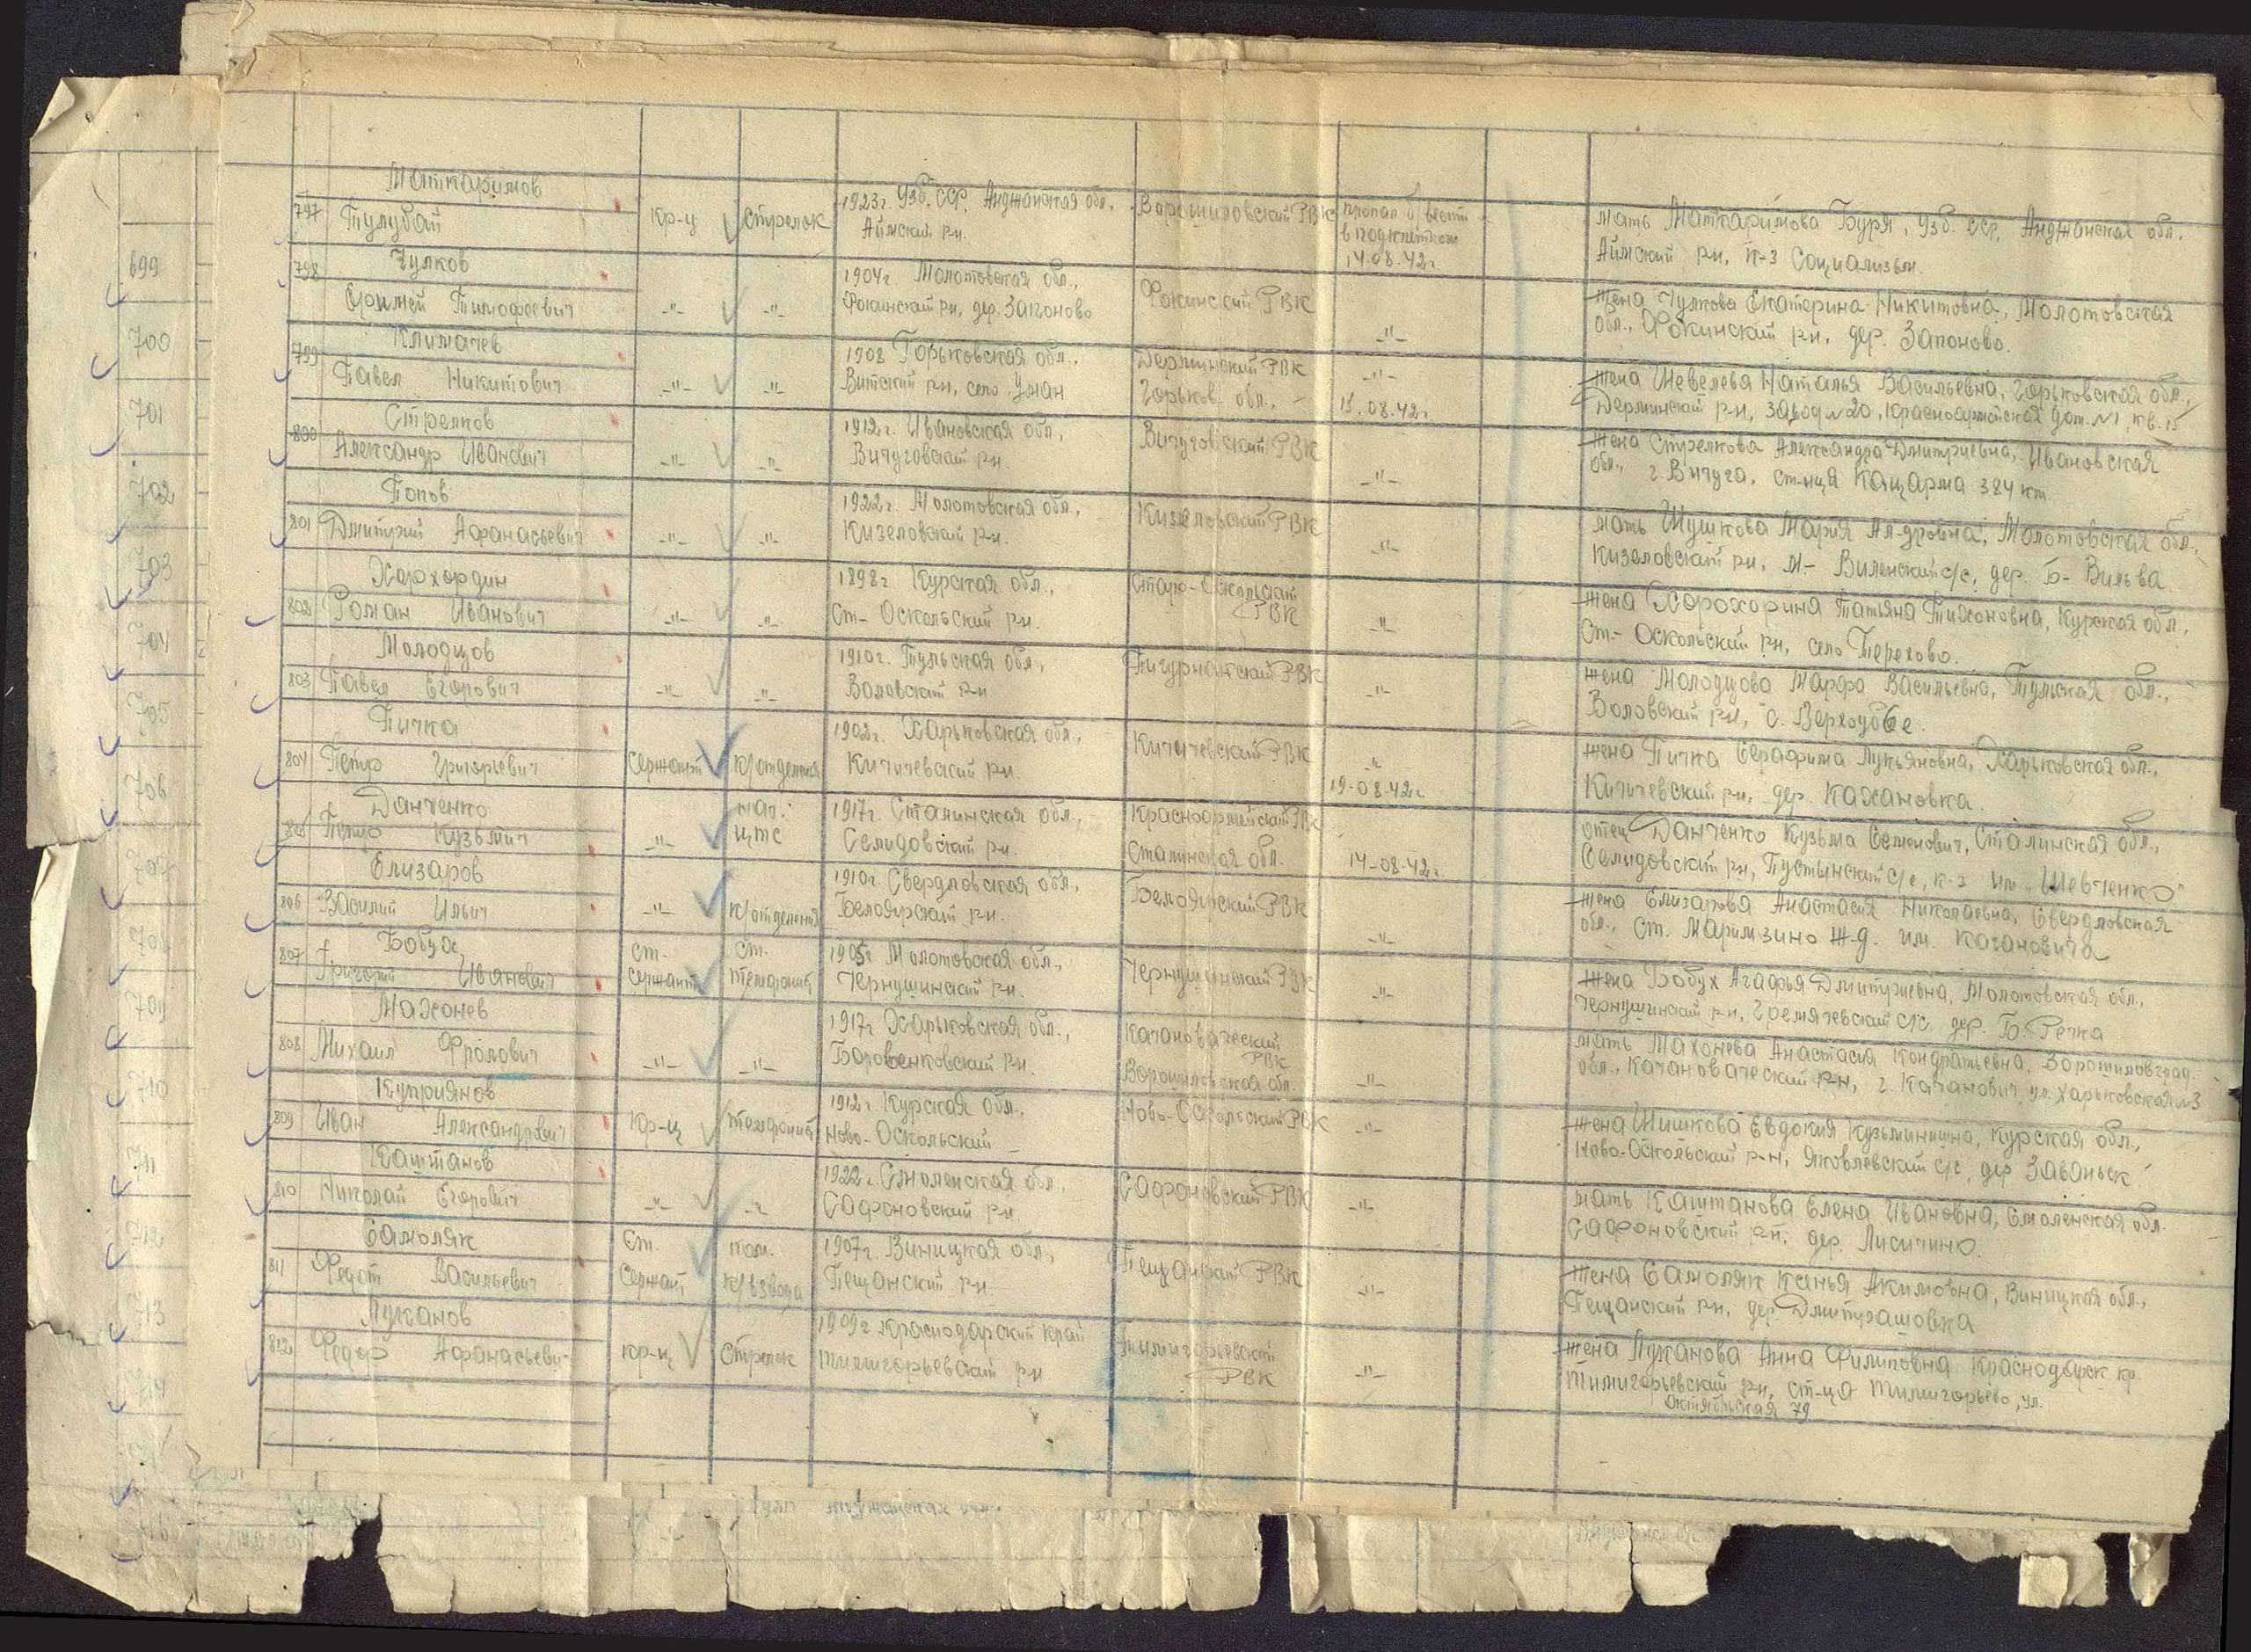 Маткаримов
797 Тулубай кр-ц стрелок 1923г. Узб. ССР, Анджанская обл., Аимский р-н. Ворошиловский РВК пропал б/вести в подклетном 14.08.42г. мать Маткаримова Буря, Узб. ССР, Анджанская обл.
Аимский р-н, к-з Социализьм.
Чулков
798 Тимофеевич -"- -"- 1904г Молотовская обл., Фокинский р-н, дер. Запоново Фокинский РВК -"- жена Чулкова Екатерина Никитовна, Молотовская
обл., Фокинский р-н, дер. Запоново.
Климачев
799 Павел Никитович -"- -"- 1908 Горьковская обл., Витский р-н, село Уман Дерминский РВК Горьков. обл., -"- 15.08.42г. жена Шевелева Наталья Васильевна, Горьковская обл.,
Дерминский р-н, завод №20, Красноармейская дом. №1, кв. 15
Стрелков
800 Александр Иванович -"- -"- 1912г. Ивановская обл, Вичуговский р-н. Вичуговский РВК -"- жена Стрелкова Александра Дмитриевна, Ивановская
обл., г. Вичуга, ст-нця Кацарма 384 км.
Попов
801 Дмитрий Афанасьевич -"- -"- 1922г. Молотовская обл., Кизеловский р-н. Кизеловский РВК -"- мать Шушкова Мария Ал-дровна, Молотовская обл.,
Кизеловский р-н, М- Виленский с/с, дер. Б- Вильва
Хархордин
802 Роман Иванович -"- -"- 1898г. Курская обл., Ст- Оскольский р-н. Старо-Оскольский РВК -"- жена Хорохорина Татьяна Тихоновна, Курская обл.,
Ст- Оскольский р-н, село Терехово.
Молодцов
803 Павел Егорович -"- -"- 1910г. Тульская обл, Воловский р-н РВК -"- жена Молодцова Марфа Васильевна, Тульская обл.,
Воловский р-н, с. Верходубе.
Пичка
804 Петр Григорьевич сержант к/отделения 1902г. Харьковская обл., Кичичевский р-н. Кичичевский РВК -"- 19.08.42г. жена Пичка Серафима Лукьяновна, Харьковская обл.,
Кичичевский р-н, дер. Кахановка.
Данченко
805 Петр Кузьмич -"- нач. цтс 1917г. Сталинская обл., Селидовский р-н. Красноармейский РВК Сталинская обл. 14-08-42г. отец Данченко Кузьма Семенович, Сталинская обл.,
Селидовский р-н, Пустынский с/с, к-з им "Шевченко"
Елизаров
806 Василий Ильич -"- к/отделения 1910г. Свердловская обл., Белоярский р-н. Белоярский РВК -"- жена Елизарова Анастасия Николаевна, Свердловская
обл., ст. Марамзино ж-д. им. Кагановича
Бобух
807 Григорий Иванович ст. сержант ст. телефонист 1905г Молотовская обл., Чернушинский р-н. Чернушинский РВК -"- жена Бобух Агафья Дмитриевна, Молотовская обл.,
Чернушинский р-н, Гремячевский с/с дер. Б. Речка
Махонев
808 Михаил Фролович -"- -"- 1917г Харьковская обл., Боровенковский р-н. Кагановаческий РВК Ворошиловская обл. -"- мать Махонева Анастасия Кондратьевна, Ворошиловград.
обл., Кагановаческий р-н, г. Каганович, ул. Харьковская №3
Куприянов
809 Иван Александрович кр-ц телефонист 1912г. Курская обл., Ново-Оскольский Ново-Оскольский РВК -"- жена Шишкова Евдокия Кузьминишна, Курская обл.,
Ново-Оскольский р-н, Яковлевский с/с, дер Заваньск.
Каштанов
810 Николай Егорович -"- -"- 1922г. Смоленская обл., Сафоновский р-н. Сафоновский РВК -"- мать Каштанова Елена Ивановна, Смоленская обл.
Сафоновский р-н. дер. Лисичино.
Самоляк
811 Федот Васильевич ст. сержант пом. к/взвода 1907г. Виницкая обл, Пещанский р-н. Пещанский РВК -"- жена Самоляк Ксенья Акимовна, Виницкая обл.,
Пещанский р-н, дер. Дмитрашовка
Луканов
812 Федор Афанасьевич кр-ц стрелок 1909г Краснодарский край Тимигорьевский р-н Тимигорьевский РВК -"- жена Луканова Анна Филиповна Краснодарск кр.
Тимигорьевский р-н, ст-ца Тимигорьево, ул.
Октябрьская 79
699
700
701
702
703
704
705
706
707
708
709
710
711
712
713
714